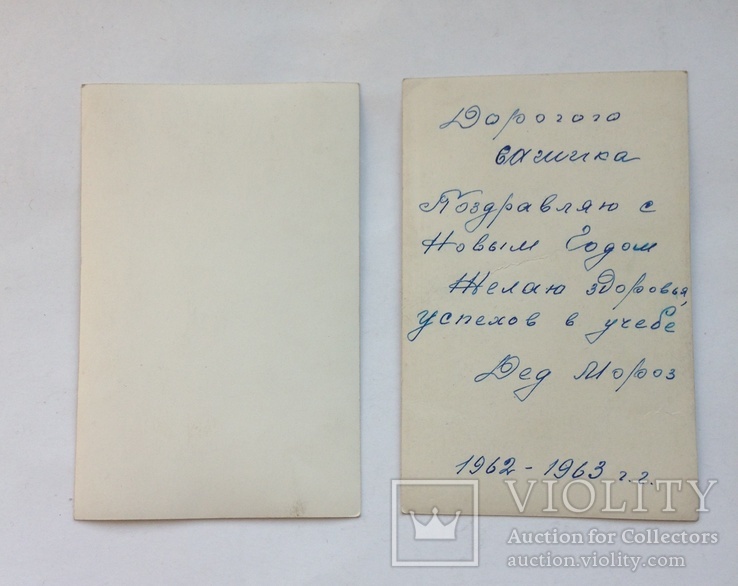 Дорогого
Поздравляю с
Новым Годом
Желаю здоровья,
успехов в учебе
Дед Мороз
1962-1963 г.г.
VIOLITY
Auction for Collectors
auction.violity.com